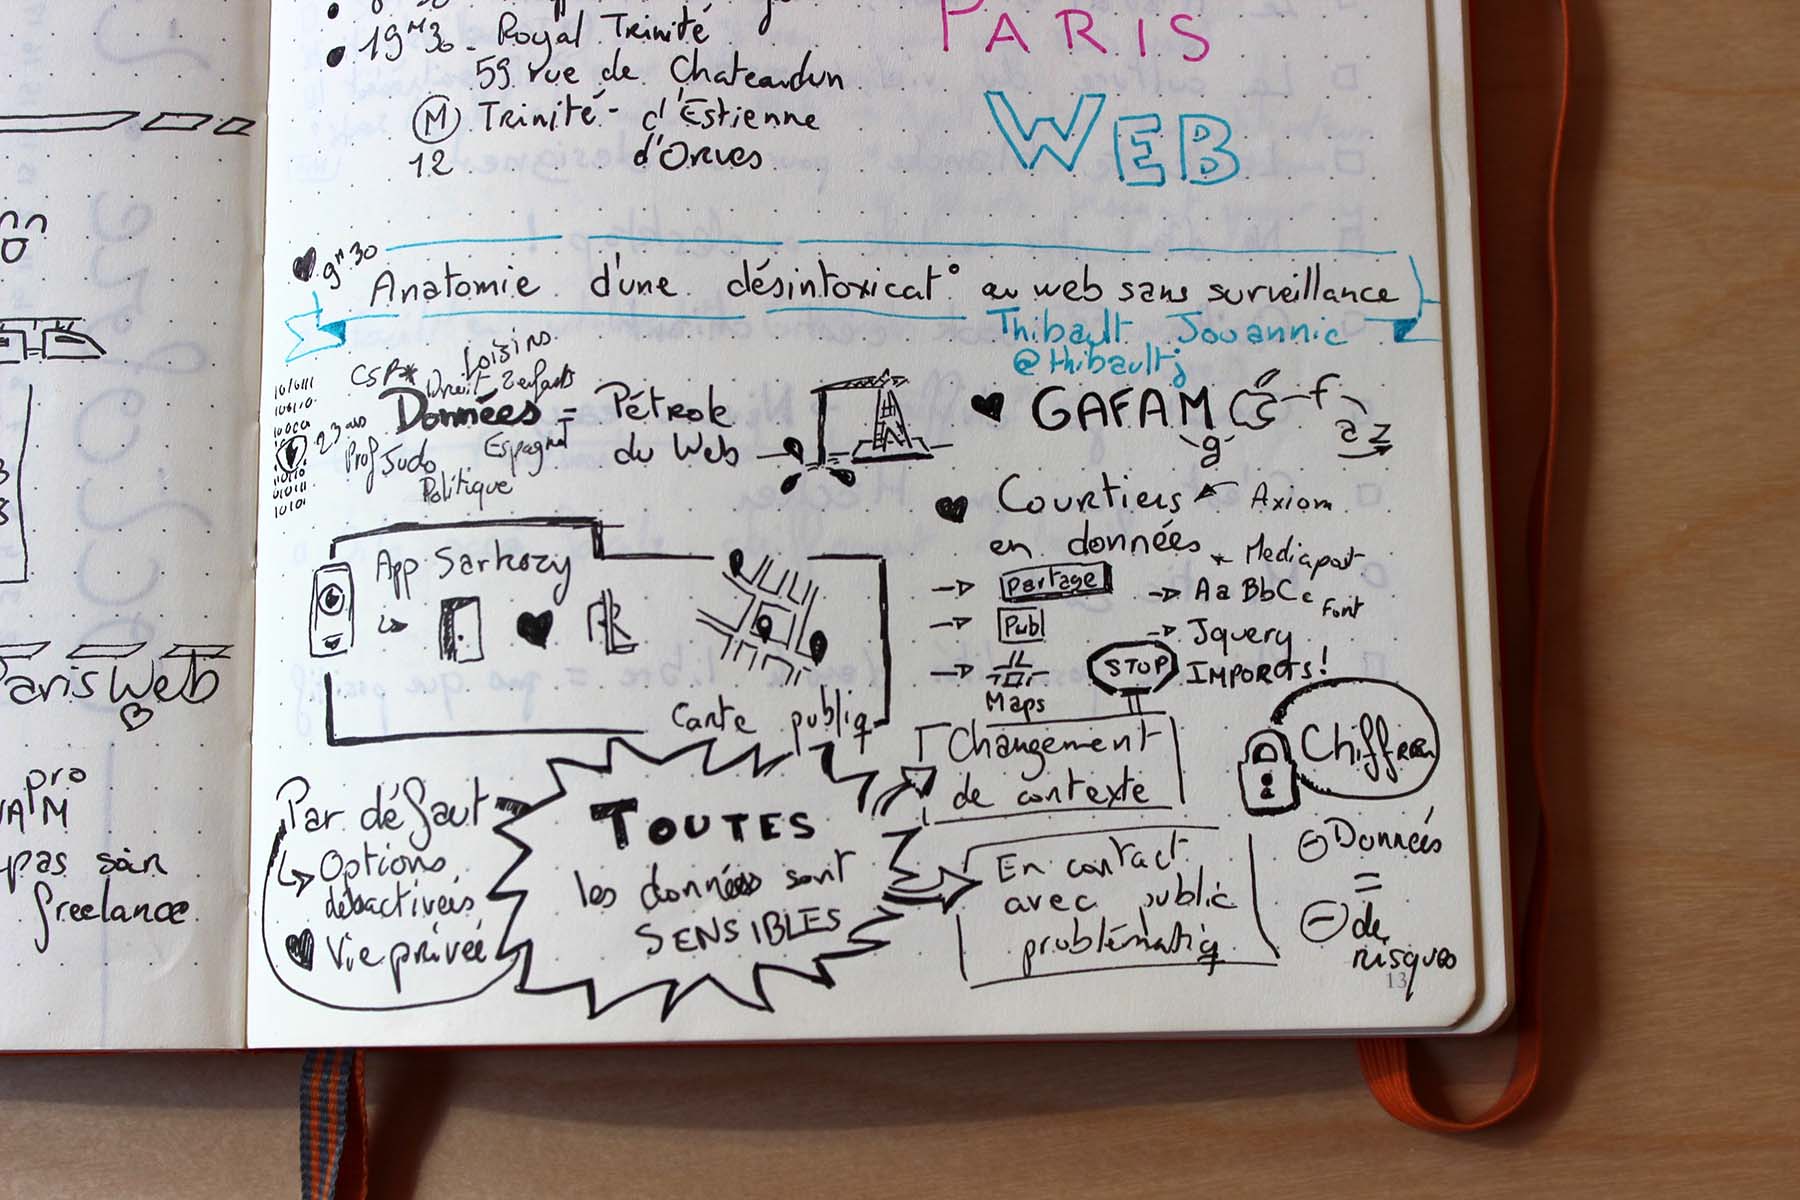 19H30 - Royal Trinité
59 rue de Chateaudun
M Trinité - d'Estienne
12 d'Orves
PARIS
WEB
9H30
Anatomie d'une désintoxicat° au web sans surveillance
Thibault Jouannic
@thibaultj
CSP*
Loisirs
Droit 2 enfants
23 ans
Données = Pétrole
du Web
Prof Judo
Espagnol
Politique
GAFAM
f
g
a z
Courtiers
en données
Axiom
Mediapost
App Sarkozy
Carte publiq
partage
Pub
Maps
Aa BbCc font
Jquery
IMPORTS!
STOP
Par défaut
Options
désactivées
Vie privée
TOUTES
les données sont
SENSIBLES
Changement
de contexte
En contact
avec public
problématiq
- Données
=
- de
risques
13
ParisWeb
pro
pas sûr
freelance